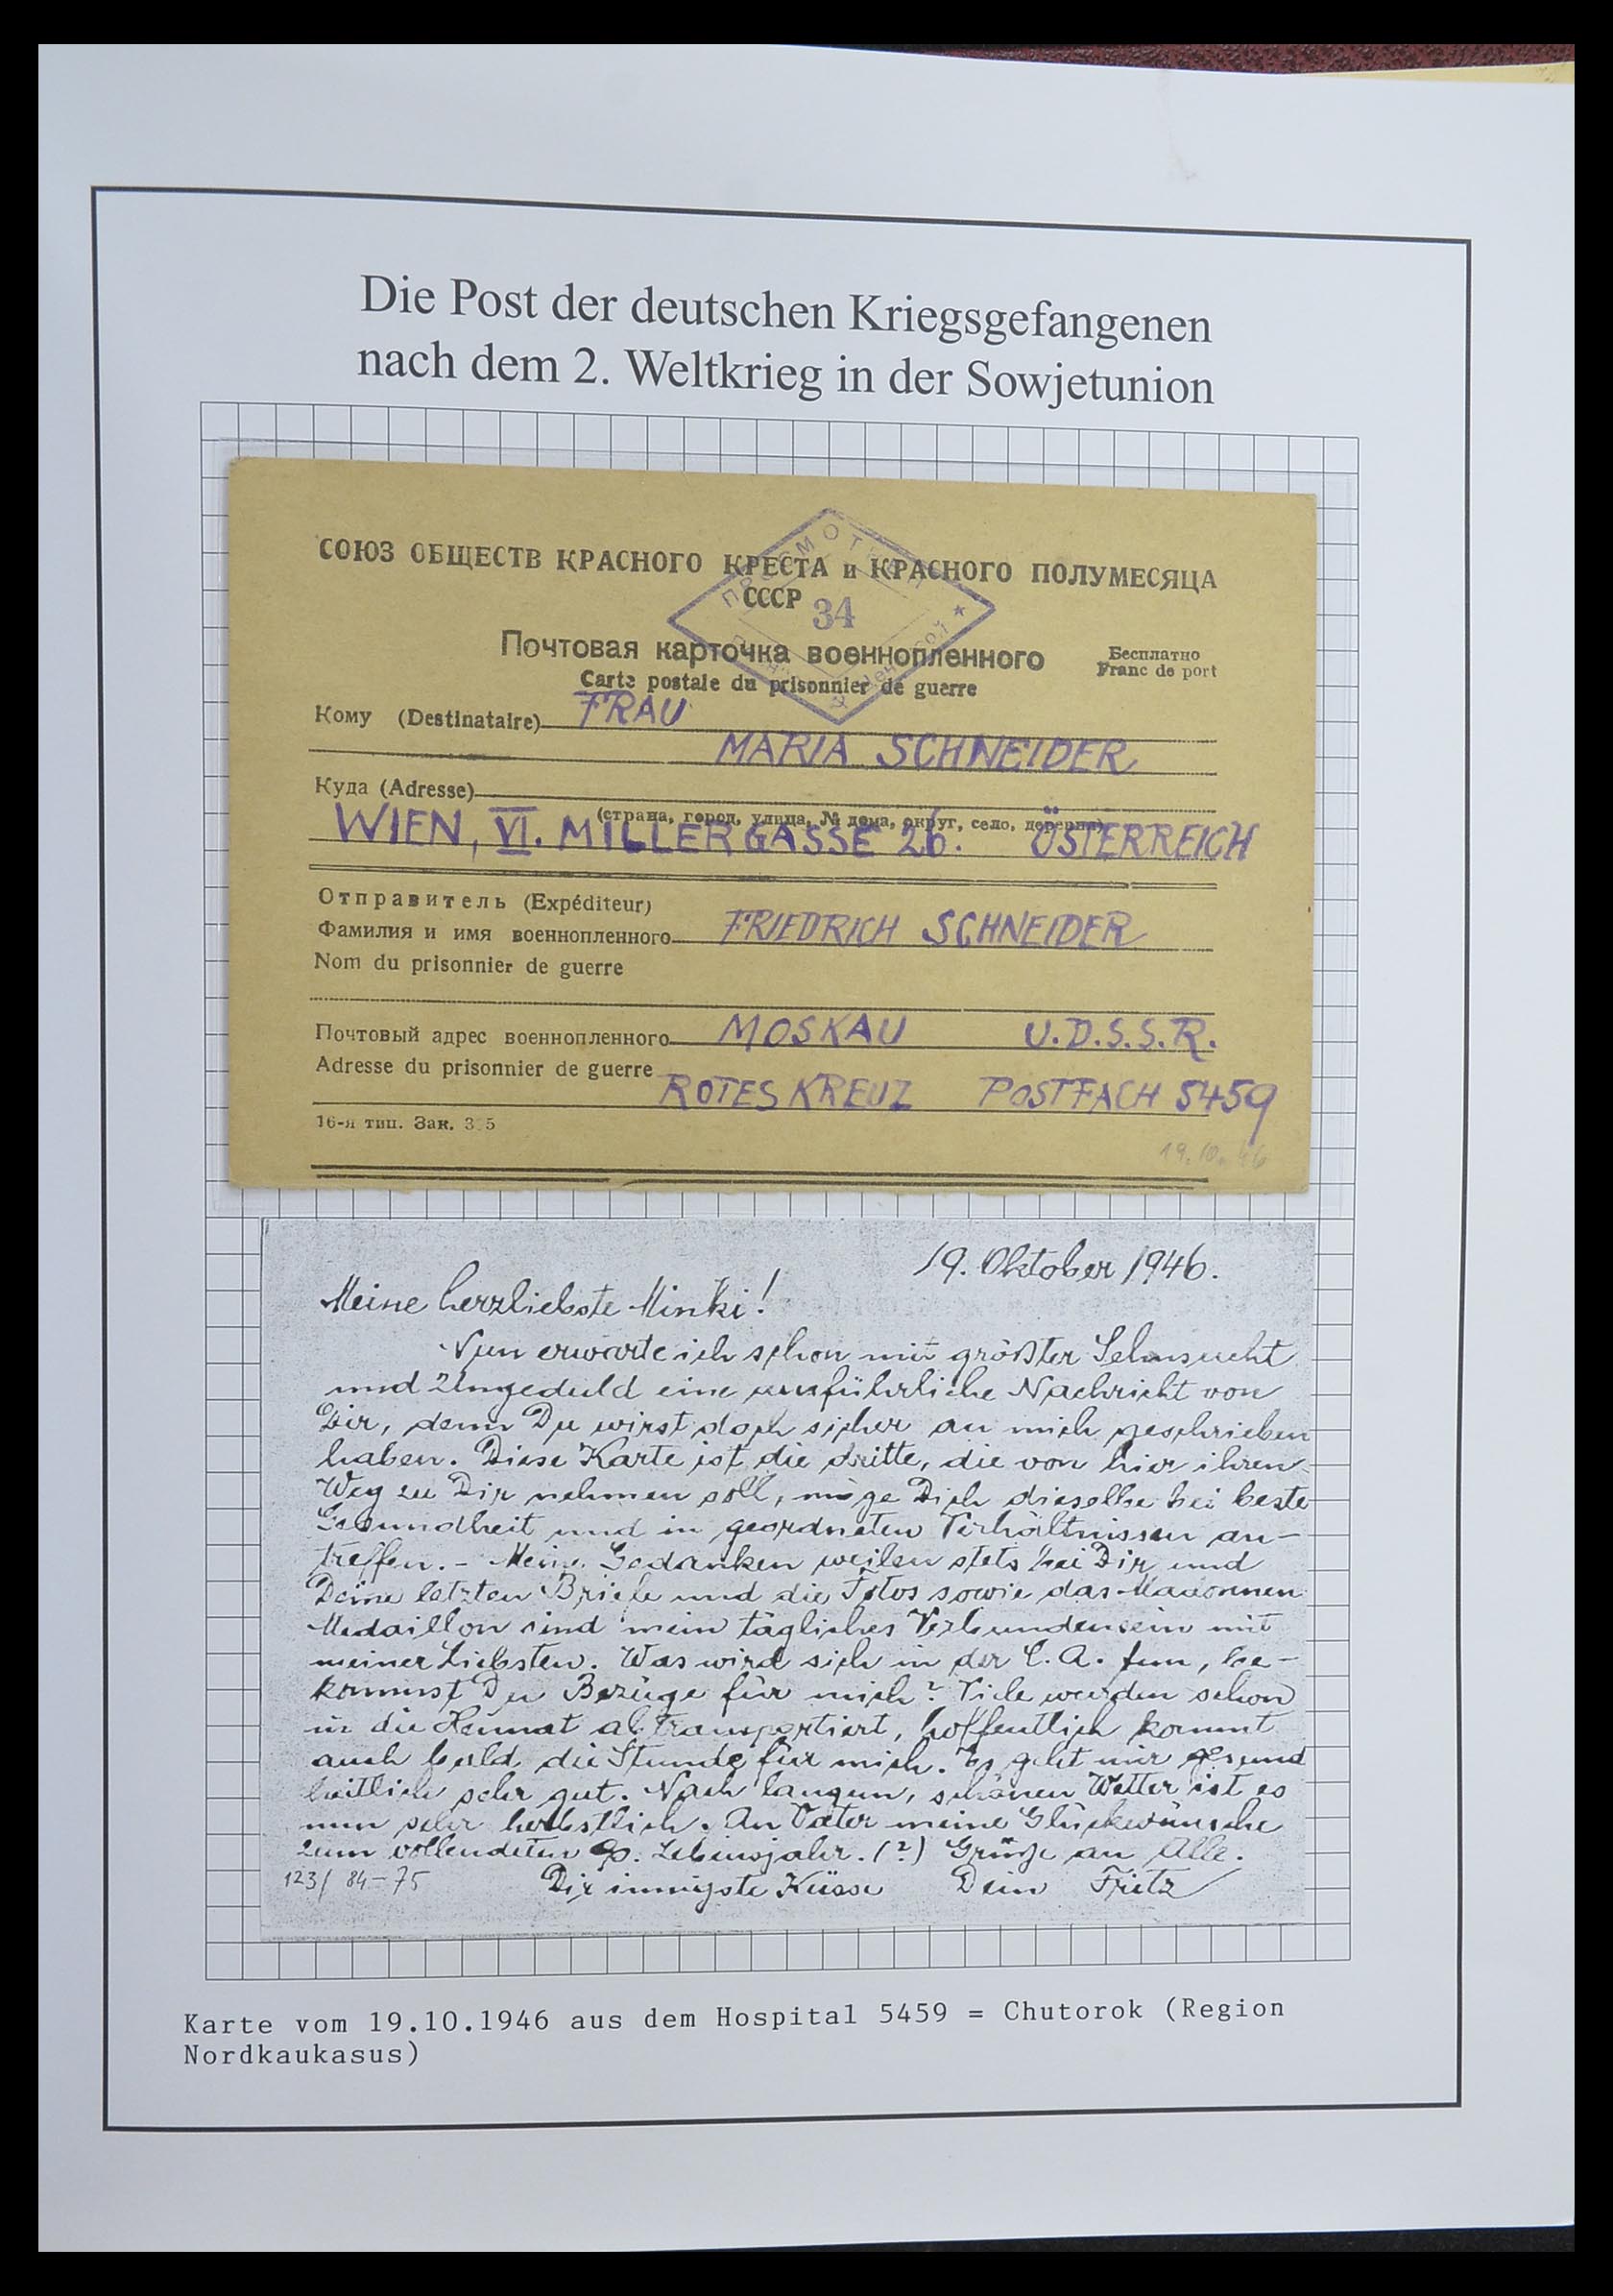 Die Post der deutschen Kriegsgefangenen
nach dem 2. Weltkrieg in der Sowjetunion
СОЮЗ ОБЩЕСТВ КРАСНОГО КРЕСТА и КРАСНОГО ПОЛУМЕСЯЦА
СССР
34
Почтовая карточка военнопленного
Бесплатно
Carte postale du prisonnier de guerre
Franc de port
Кому (Destinataire) FRAU
MARIA SCHNEIDER
Куда (Adresse)
(страна, город, улица, № дома, округ, село, деревня)
WIEN, VI. MILLERGASSE 26. ÖSTERREICH
Отправитель (Expéditeur)
Фамилия и имя военнопленного FRIEDRICH SCHNEIDER
Nom du prisonnier de guerre
Почтовый адрес военнопленного MOSKAU U.D.S.S.R.
Adresse du prisonnier de guerre ROTES KREUZ POSTFACH 5459
16-я тип. Зак.
19.10.46
19. Oktober 1946.
Meine herzliebste Minki!
Nun erwarte ich schon mit größter Sehnsucht
und Ungeduld eine ausführliche Nachricht von
Dir, denn Du wirst doch sicher an mich geschrieben
haben. Diese Karte ist die dritte, die von hier ihren
Weg zu Dir nehmen soll, möge Dich dieselbe bei beste
Gesundheit und in geordneten Verhältnissen an-
treffen. - Meine Gedanken weilen stets bei Dir und
Deine letzten Briefe und die Fotos sowie das Madonnen
Medaillon sind mein tägliches Verbundensein mit
meiner Liebsten. Was wird sich in der C. A. tun, be-
kommst Du Bezüge für mich? Viele werden schon
in die Heimat abtransportiert, hoffentlich kommt
auch bald die Stunde für mich. Es geht mir gesund
heitlich sehr gut. Nach langem, schönen Wetter ist es
nun sehr herbstlich. An Vater meine Glückwünsche
zum vollendeten Lebensjahr. (?) Grüße an Alle.
123/ 84-75 Dir innigste Küsse Dein Fritz
Karte vom 19.10.1946 aus dem Hospital 5459 = Chutorok (Region
Nordkaukasus)